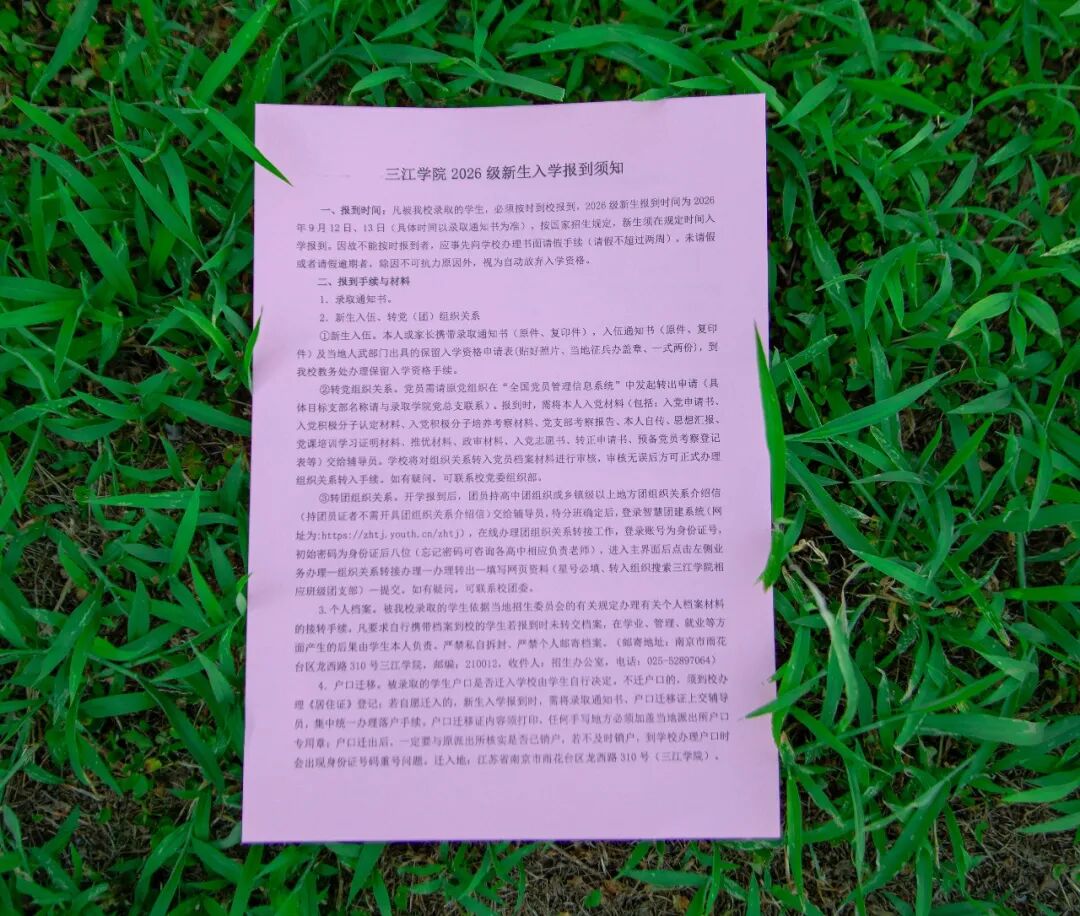 三江学院 2026 级新生入学报到须知
一、报到时间：凡被我校录取的学生，必须按时到校报到，2026 级新生报到时间为 2026
年 9 月 12 日、13 日（具体时间以录取通知书为准），按国家招生规定，新生须在规定时间入
学报到。因故不能按时报到者，应事先向学校办理书面请假手续（请假不超过两周）。未请假
或者请假逾期者，除因不可抗力原因外，视为自动放弃入学资格。
二、报到手续与材料
1．录取通知书。
2．新生入伍、转党（团）组织关系
①新生入伍。本人或家长携带录取通知书（原件、复印件），入伍通知书（原件、复印
件）及当地人武部门出具的保留入学资格申请表(贴好照片、当地征兵办盖章、一式两份)，到
我校教务处办理保留入学资格手续。
②转党组织关系。党员需请原党组织在“全国党员管理信息系统”中发起转出申请（具
体目标支部名称请与录取学院党总支联系）。报到时，需将本人入党材料（包括：入党申请书、
入党积极分子认定材料、入党积极分子培养考察材料、党支部考察报告、本人自传、思想汇报、
党课培训学习证明材料、推优材料、政审材料、入党志愿书、转正申请书、预备党员考察登记
表等）交给辅导员。学校将对组织关系转入党员档案材料进行审核，审核无误后方可正式办理
组织关系转入手续。如有疑问，可联系校党委组织部。
③转团组织关系。开学报到后，团员持高中团组织或乡镇级以上地方团组织关系介绍信
（持团员证者不需开具团组织关系介绍信）交给辅导员，待分班确定后，登录智慧团建系统（网
址为:https://zhtj.youth.cn/zhtj），在线办理团组织关系转接工作，登录账号为身份证号，
初始密码为身份证后八位（忘记密码可咨询各高中相应负责老师），进入主界面后点击左侧业
务办理—组织关系转接办理—办理转出—填写网页资料（星号必填、转入组织搜索三江学院相
应班级团支部）—提交。如有疑问，可联系校团委。
3.个人档案。被我校录取的学生依据当地招生委员会的有关规定办理有关个人档案材料
的接转手续。凡要求自行携带档案到校的学生若报到时未转交档案，在学业、管理、就业等方
面产生的后果由学生本人负责。严禁私自拆封、严禁个人邮寄档案。（邮寄地址：南京市雨花
台区龙西路 310 号三江学院，邮编：210012，收件人：招生办公室，电话：025-52897064）
4．户口迁移。被录取的学生户口是否迁入学校由学生自行决定。不迁户口的，须到校办
理《居住证》登记；若自愿迁入的，新生入学报到时，需将录取通知书、户口迁移证上交辅导
员，集中统一办理落户手续。户口迁移证内容须打印，任何手写地方必须加盖当地派出所户口
专用章；户口迁出后，一定要与原派出所核实是否已销户，若不及时销户，到学校办理户口时
会出现身份证号码重号问题。迁入地：江苏省南京市雨花台区龙西路 310 号（三江学院）。